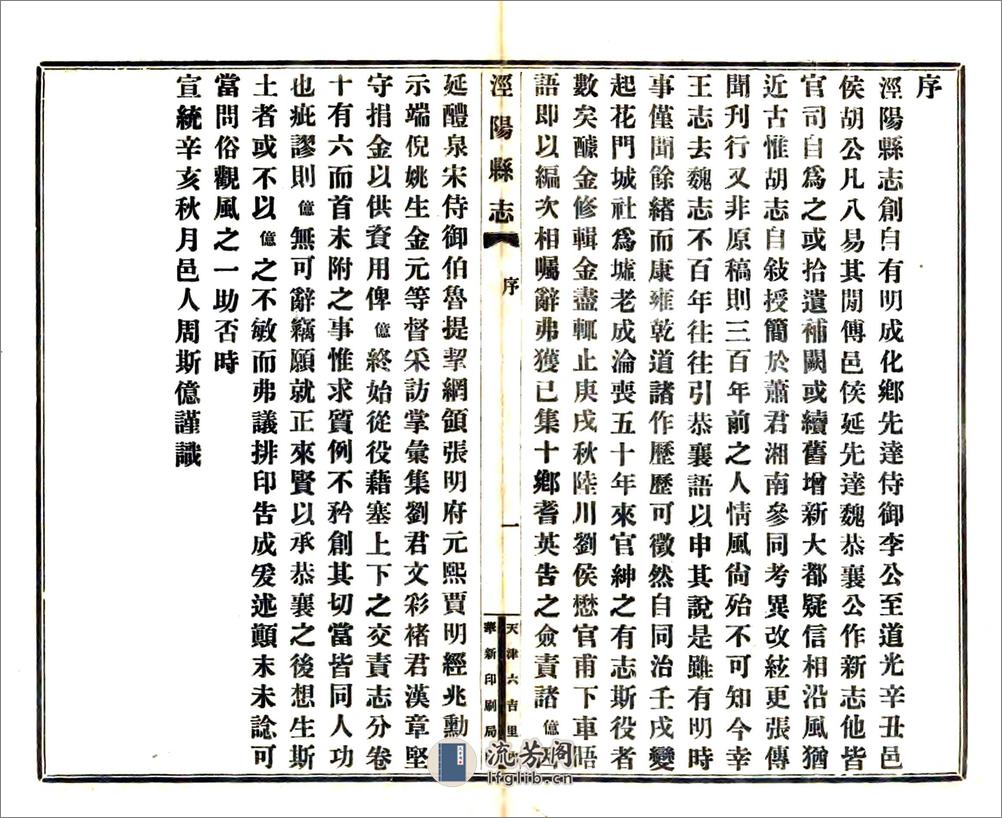 序
涇陽縣志創自有明成化鄉先達侍御李公至道光辛丑邑
侯胡公凡八易其閒傅邑侯延先達魏恭襄公作新志他皆
官司自爲之或拾遺補闕或續舊增新大都疑信相沿風猶
近古惟胡志自敍授簡於蕭君湘南參同考異改絃更張傳
聞刊行又非原稿則三百年前之人情風尙殆不可知今幸
王志去魏志不百年往往引恭襄語以申其說是雖有明時
事僅聞餘緒而康雍乾道諸作歷歷可徵然自同治壬戌變
起花門城社爲墟老成淪喪五十年來官紳之有志斯役者
數矣醵金修輯金盡輒止庚戌秋陸川劉侯懋官甫下車晤
語即以編次相囑辭弗獲已集十鄉耆英吿之僉責諸億
涇陽縣志 序 一 天津六吉里
華新印刷局
延醴泉宋侍御伯魯提挈綱領張明府元熙賈明經兆勳
示端倪姚生金元等督采訪掌彙集劉君文彩褚君漢章堅
守捐金以供資用俾億終始從役藉塞上下之交責志分卷
十有六而首末附之事惟求質例不矜創其切當皆同人功
也疵謬則億無可辭竊願就正來賢以承恭襄之後想生斯
土者或不以億之不敏而弗議排印吿成爰述顛末未諗可
當問俗觀風之一助否時
宣統辛亥秋月邑人周斯億謹識
流芳閣
lfglib.cn